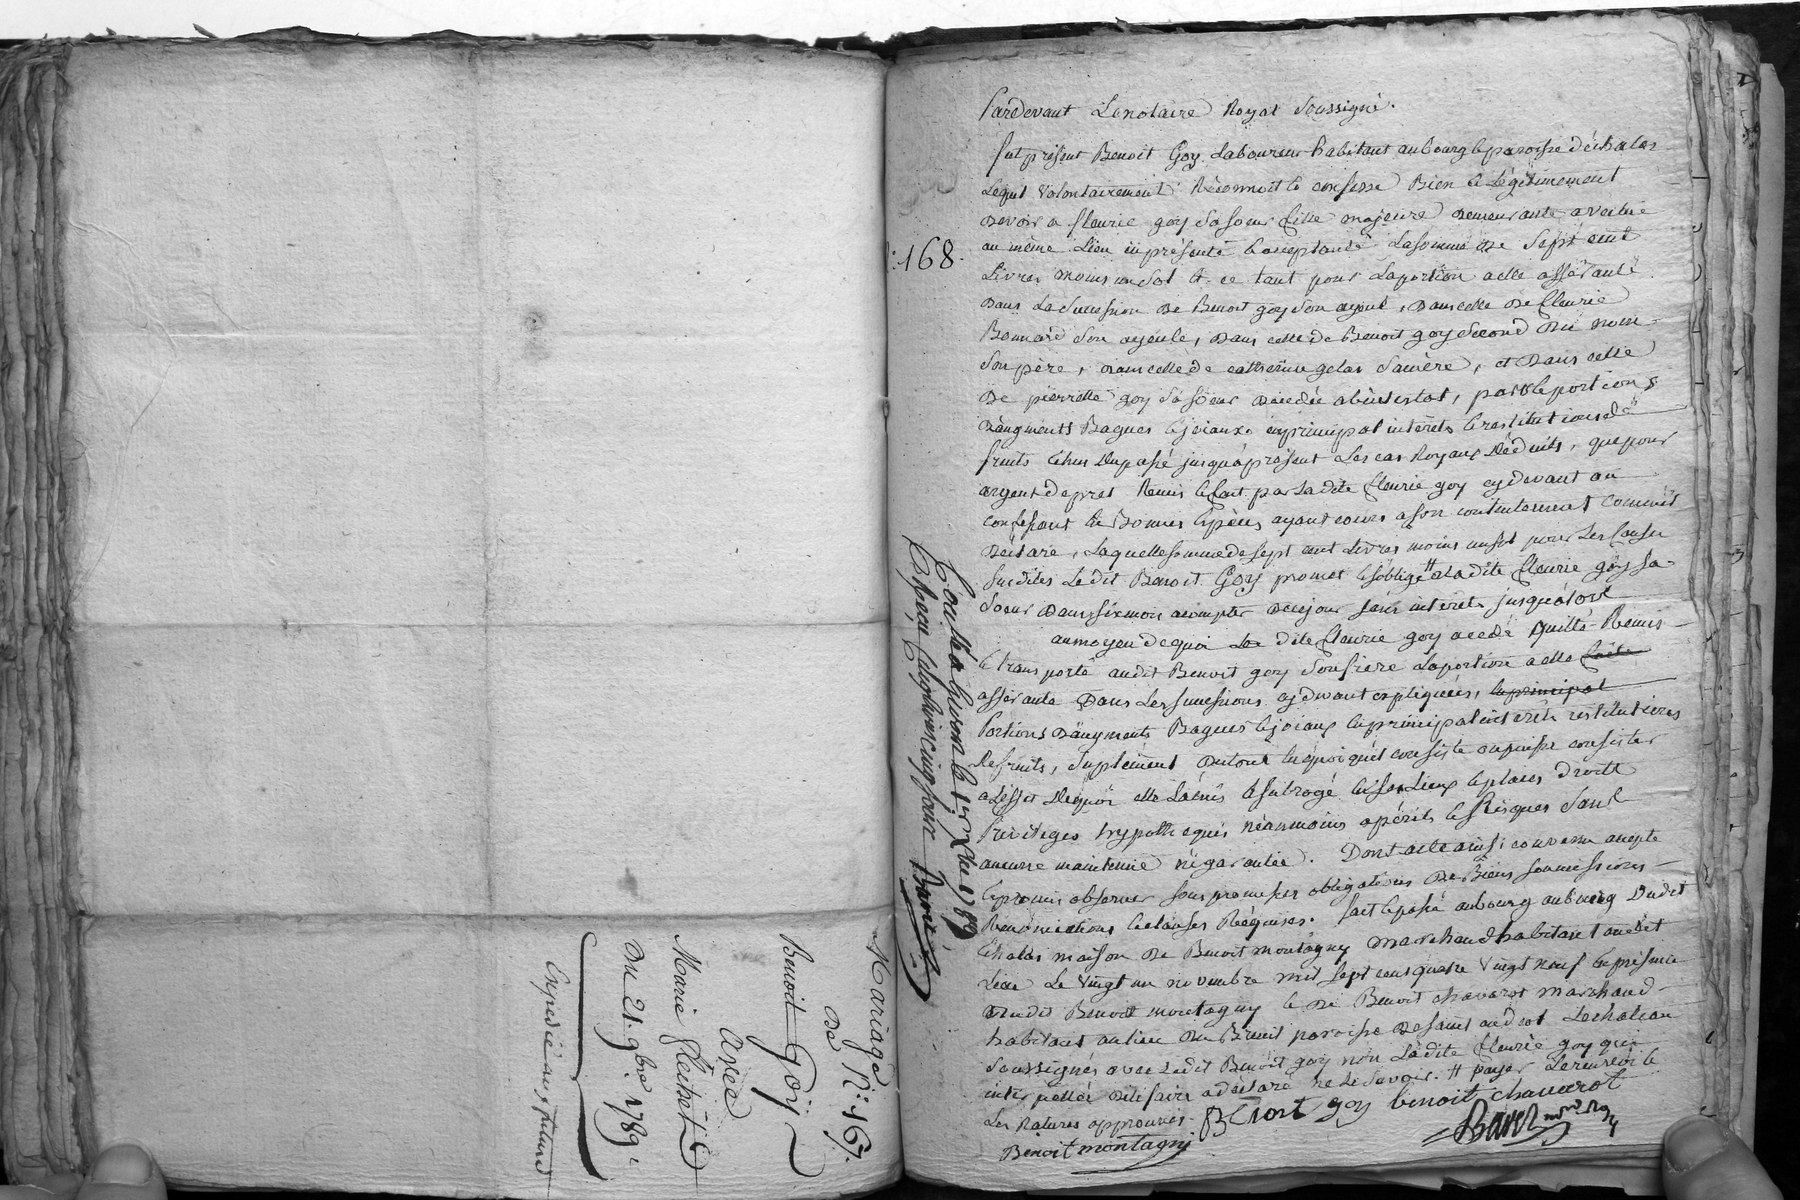 Mariage N.° 167.
De
Benoit Goÿ
avec
Marie fleichet
Du 21. 9bre 1789.
Expedié aux futurs
168.
Controllé a Givors le 1er Xbre 1789
Reçu
Pardevant Le notaire Royal Soussigné.
fut présent Benoit Goy Laboureur habitant au bourg & paroisse d'échalas
Lequel Volontairement Réconnoit & confesse Bien & Légitimement
Devoir a fleurie goy Sa Soeur fille majeure Demeurante
au même Lieu ici présente & acceptante La somme De Sept cent
Livres moins un Sol & ce tant pour La portion a elle afférante
Dans La Succession De Benoit goy Son ayeul, Dans celle De fleurie
Bonnard Son ayeule, Dans celle de Benoit goy Second Du nom
Son père, Dans celle de catherine gelas Sa mère, et Dans celle
De pierrette goy Sa Soeur Décédée abintestat, part & portions
D'augments Bagues & joiaux en principal intérêts & restitutions de
fruits échus Du passé jusqu'à présent Les cas Royaux Déduits, que pour
argent de pret Remis & fait par Ladite fleurie goy cy devant au
confessant En Bonnes Espèces ayant cours a son contentement comme il
Déclare, Laquelle somme de sept cent Livres moins un sol pour Les causes
Susdites Ledit Benoit Goy promet & s'oblige # a Ladite fleurie goy Sa
Soeur Dans six mois a compter De ce jour sans intérêts jusqu'alors
au moyen de quoi La dite fleurie goy a cédé Quitté Remis
& transporté audit Benoit goy Son frère La portion a elle
afférante Dans Les successions cy devant expliquées, le principal
Portions D'augments Bagues & joiaux en principal intérêts restitutions
De fruits, Suplément Du tout En quoi qu'il consiste ou puisse consister
a L'effet De quoi elle L'a mis & subrogé En ses Lieux & places Droits
Privilèges hypothèques néanmoins a périls & Risques Sans
aucune maintenue ni garantie. Dont acte ainsi convenu accepté
& promis observer sous promesses obligations De Biens soumissions
Renonciations & clauses Réquises. fait & passé au bourg au bourg Dudit
Echalas maison De Benoit montagny marchand habitant audit
Lieu Le Vingt un novembre mil sept cent quatre Vingt neuf En présence
Dudit Benoit montagny & De Benoit chavarot marchand
habitant au lieu Du paroisse De saint andeol Lechateau
Soussignés avec Ledit Benoit goy non Ladite fleurie goy qui
interpellée De le faire a Déclaré ne Le Savoir. # payer
Les Ratures approuvés.
Benoit goy benoit chavarot
Benoit montagni